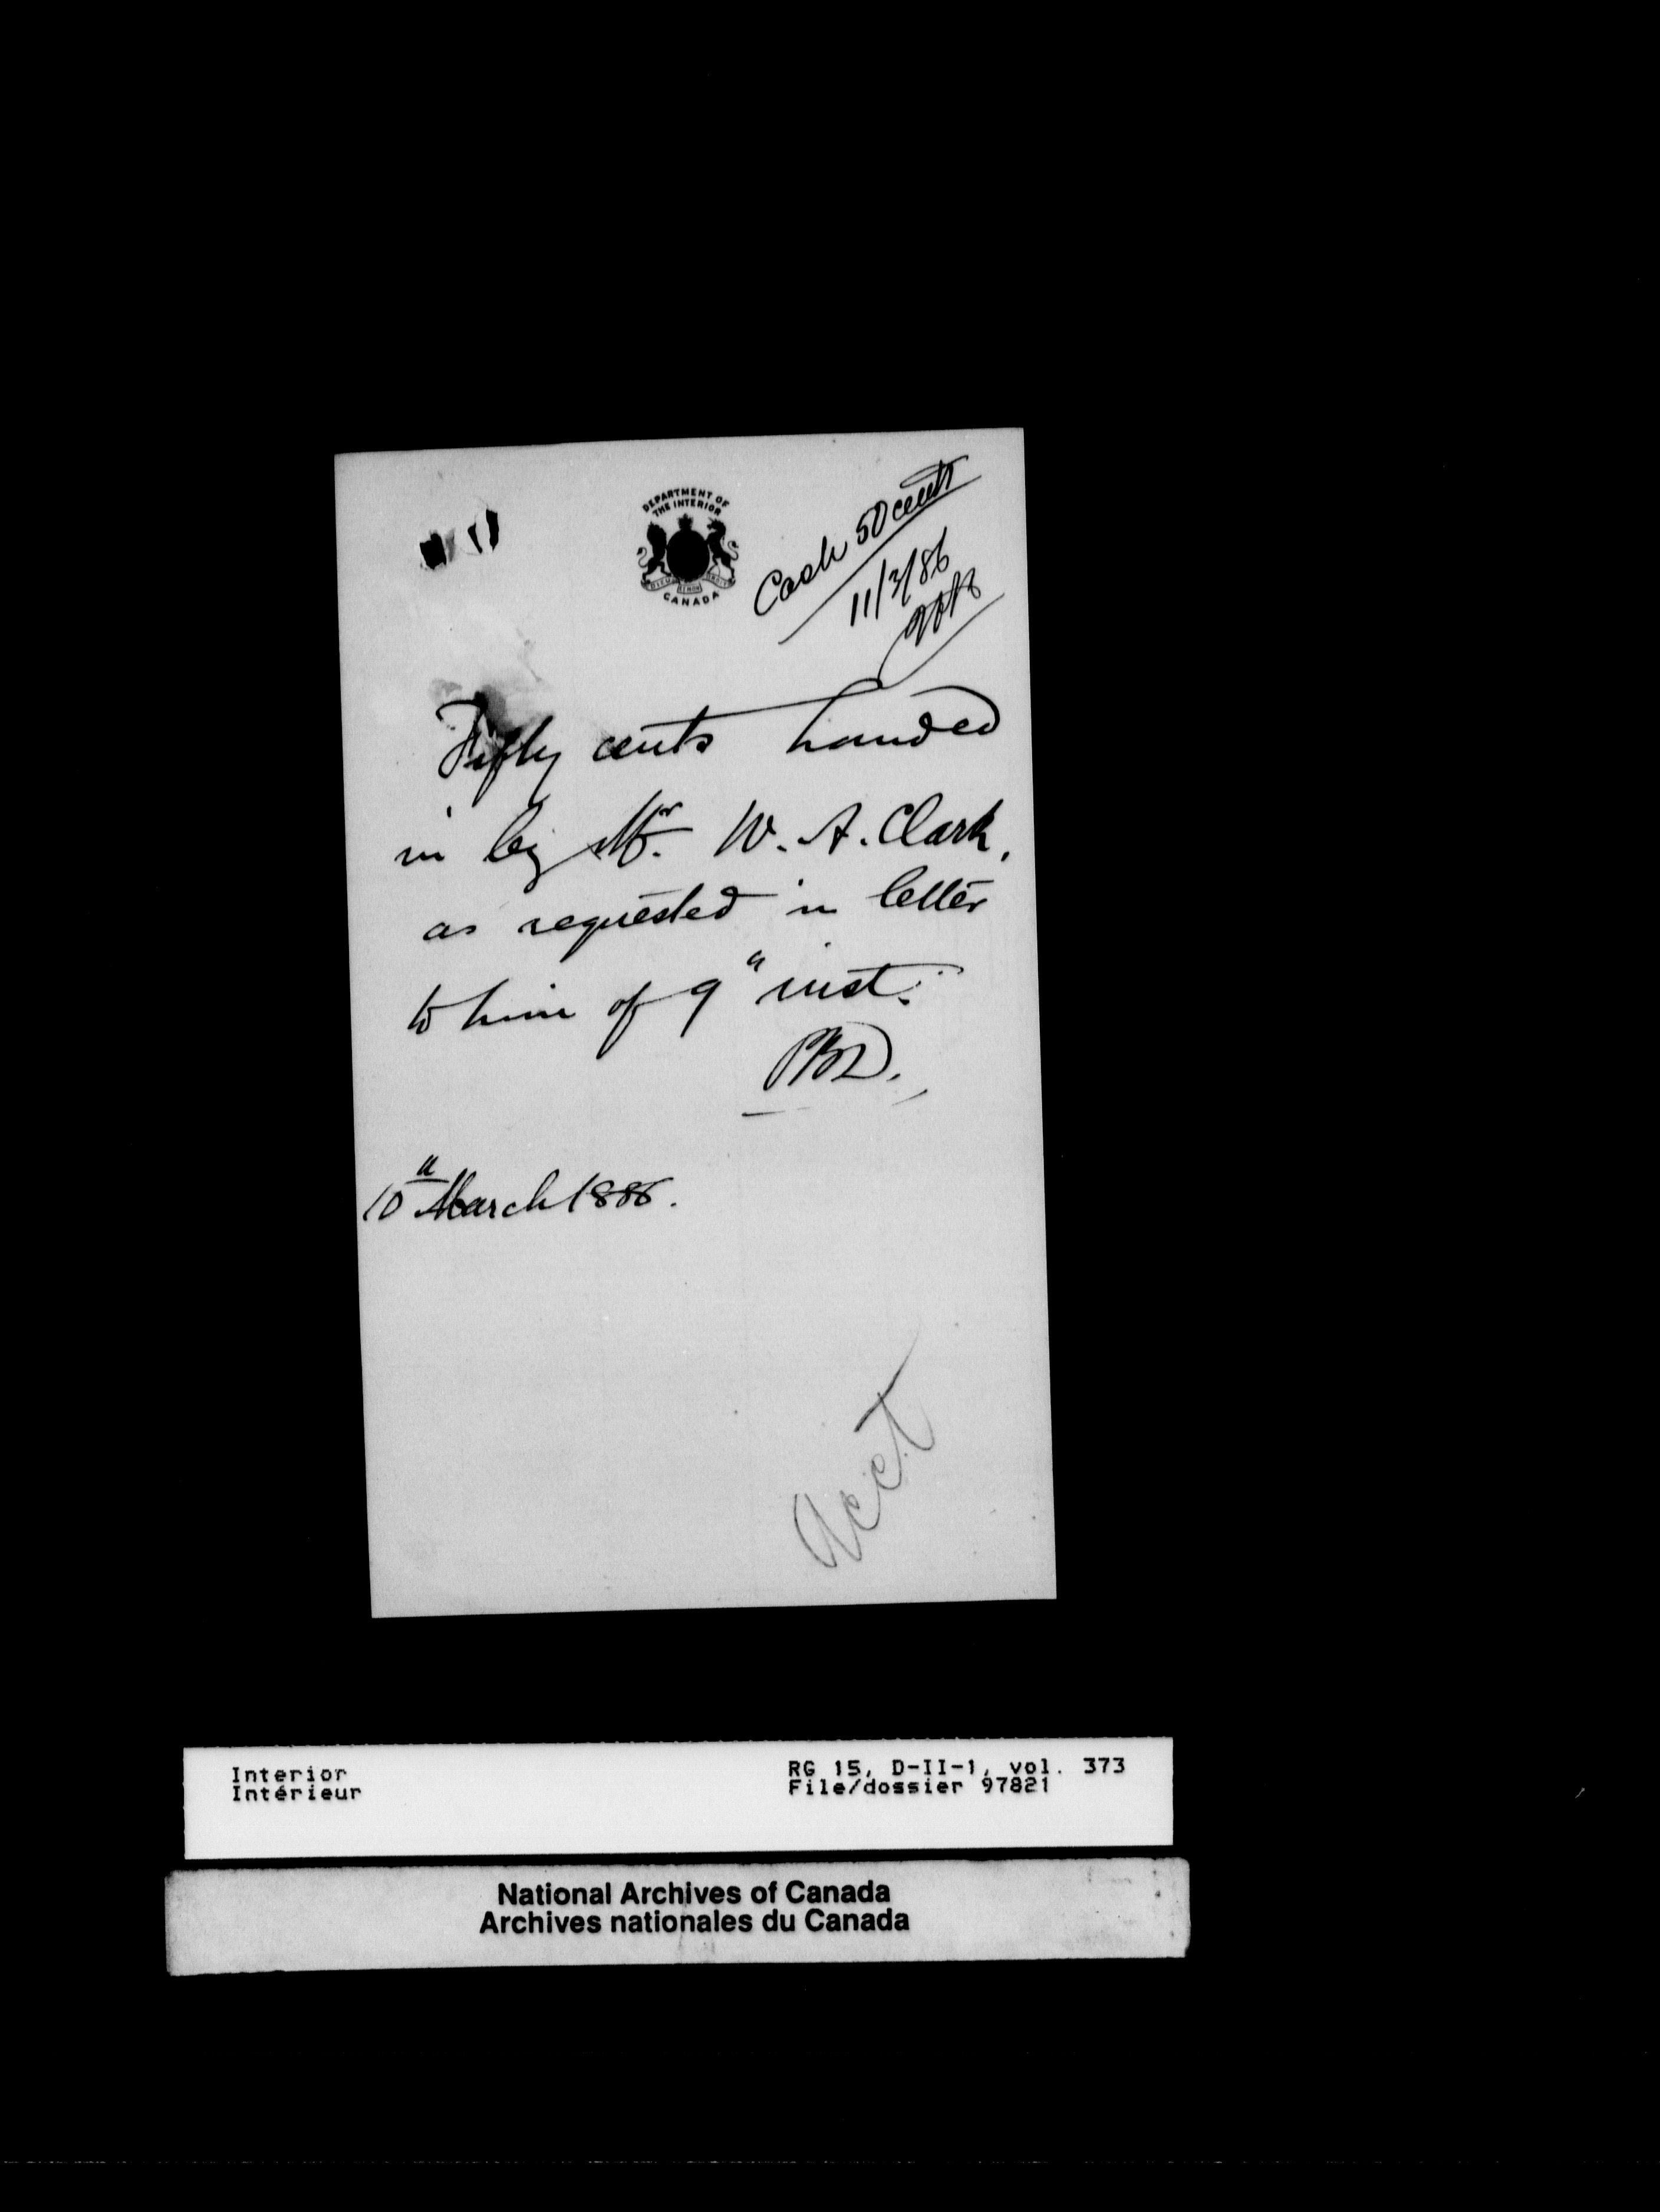 DEPARTMENT OF
THE INTERIOR
CANADA
Cash 50 cents
11/3/86
Fifty cents handed
in by Mr. W. A. Clark,
as requested in letter
to him of 9" inst.
PBD.
10" March 1886.
Acct
Interior
Intérieur
RG 15, D-II-1, vol. 373
File/dossier 97821
National Archives of Canada
Archives nationales du Canada